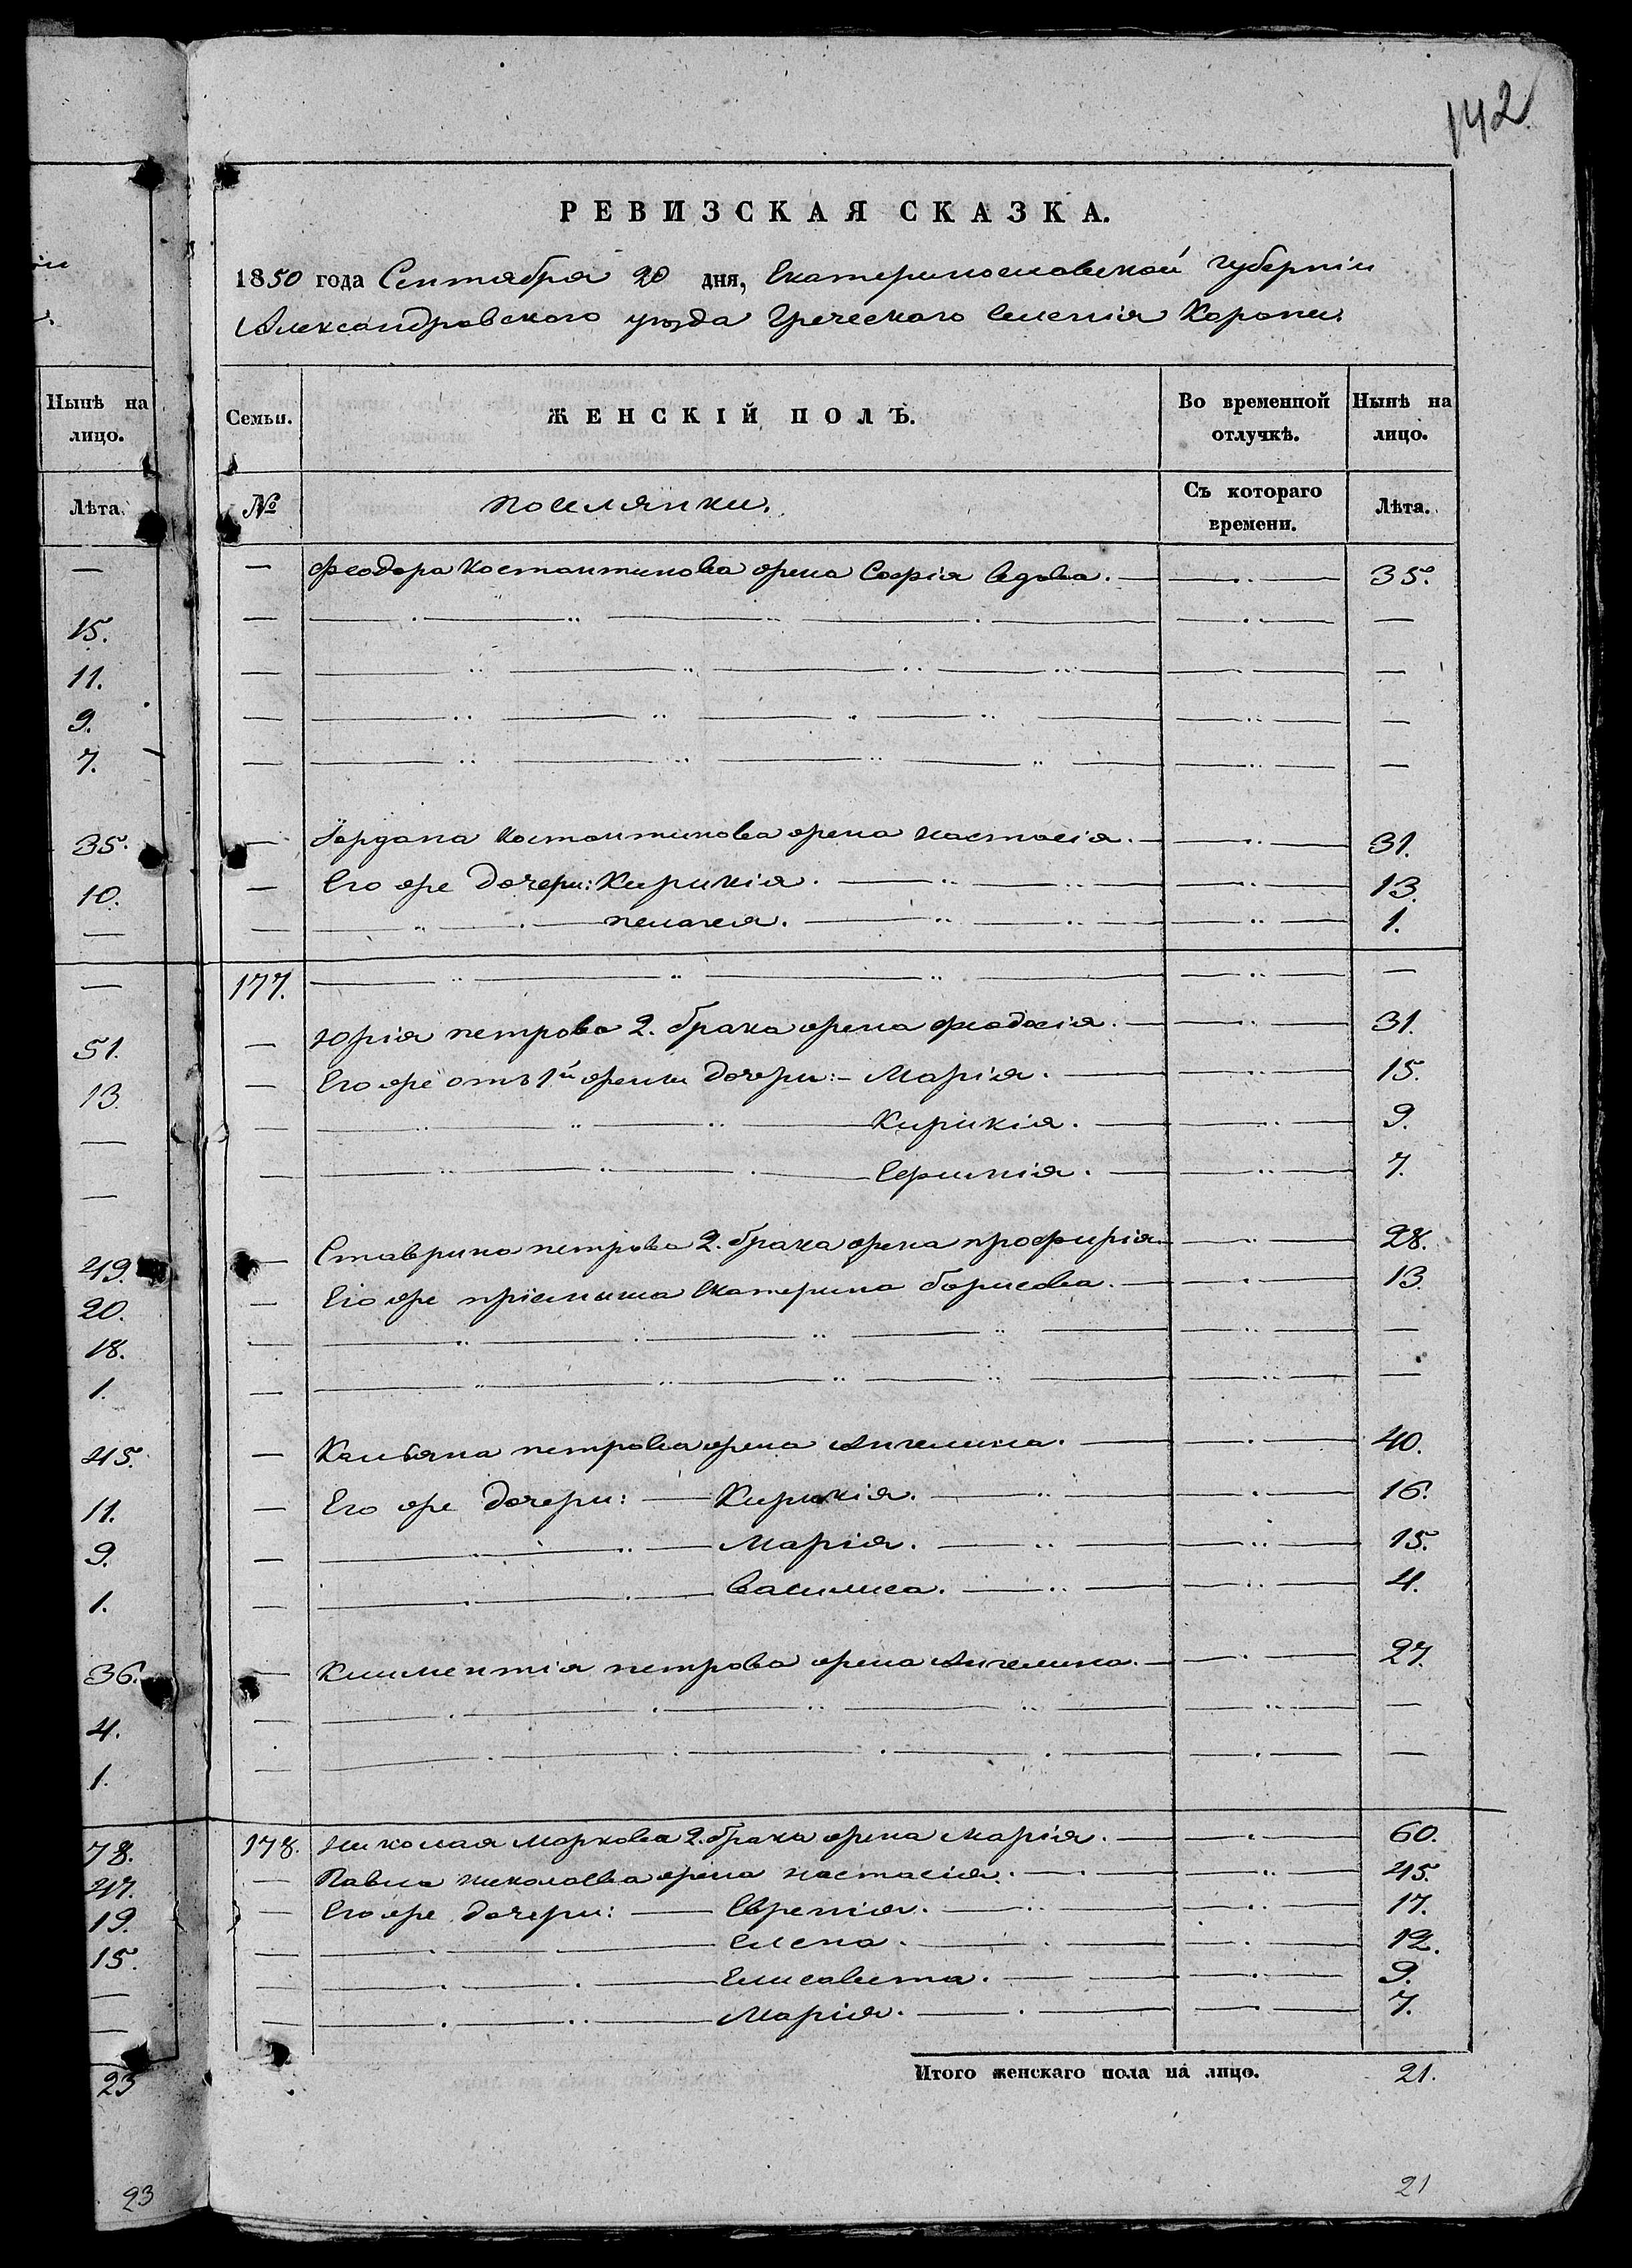 142
РЕВИЗСКАЯ СКАЗКА.
1850 года Сентября 20 дня, Екатеринославской губерніи
Александровскаго уѣзда Греческаго селенія Корани.
Нынѣ на лицо.
Лѣта.
—
15.
11.
9.
7.
35.
10.
—
—
51.
13.
—
—
49.
20.
18.
1.
45.
11.
9.
1.
36.
4.
1.
78.
47.
19.
15.
—
—
23
23
Семьи. ЖЕНСКІЙ ПОЛЪ. Во временной отлучкѣ. Нынѣ на лицо.
№ Поселянки. Съ котораго времени. Лѣта.
— Феодора Костантинова жена Софія вдова. — 35.
— Іордана Костантинова жена Настасія. — 31.
— Его же дочери: Кирикія. — 13.
— Пелагея. — 1.
177. —
— Юрія Петрова 2. брака жена Феодосія. — 31.
— Его же отъ 1й жены дочери: Марія. — 15.
— Кирикія. — 9.
— Серикія. — 7.
— Ставрина Петрова 2. брака жена Профирія. — 28.
— Его же пріемыша Екатерина Борисова. — 13.
— Кельяна Петрова жена Ангелина. — 40.
— Его же дочери: Кирикія. — 16.
— Марія. — 15.
— Василиса. — 4.
— Климентія Петрова жена Ангелина. — 27.
178. Николая Маркова 2. брака жена Марія. — 60.
— Павла Николаева жена Настасія. — 45.
— Его же дочери: Еврепія. — 17.
— Елена. — 12.
— Елисавета. — 9.
— Марія. — 7.
Итого женскаго пола на лицо. 21.
21